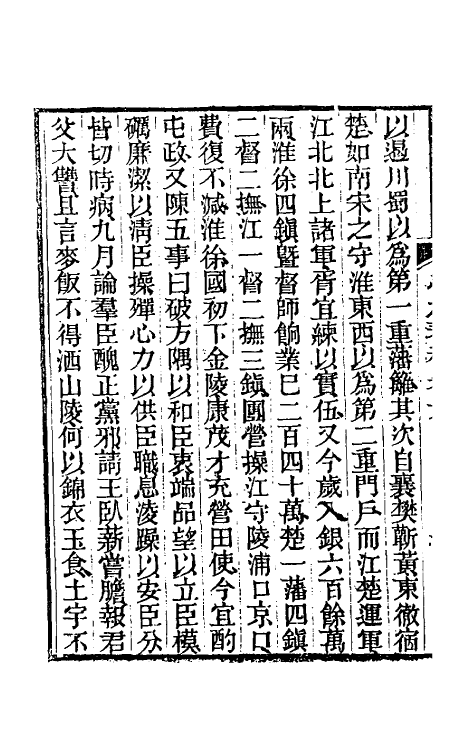 以遏川蜀以爲第一重藩籬其次自襄樊蘄黃東徹宿
楚如南宋之守淮東西以爲第二重門戶而江楚運軍
江北北上諸軍胥宜練以實伍又今歲入銀六百餘萬
兩淮徐四鎮曁督師餉業巳二百四十萬楚一藩四鎮
二督二撫江一督二撫三鎮團營操江守陵浦口京口
費復不減淮徐國初下金陵康茂才充營田使今宜酌
屯政又陳五事曰破方隅以和臣衷端品望以立臣模
礪廉潔以淸臣操殫心力以供臣職息淩躁以安臣分
皆切時病九月論羣臣醜正黨邪請王臥薪嘗膽報君
父大讐且言麥飯不得洒山陵何以錦衣玉食土宇不